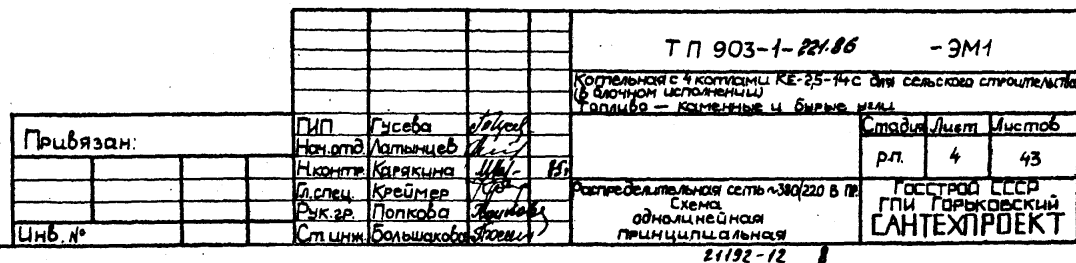 ТП 903-1-221.86 -ЭМ1
Котельная с 4 котлами КЕ-2,5-14с для сельского строительства
(в блочном исполнении)
Топливо — каменные и бурые угли
Привязан:
Инв. №
ГИП Гусева
Нач.отд. Латынцев
Н.контр. Карякина 85г
Гл.спец. Креймер
Рук.гр. Попкова
Ст.инж. Большакова
Стадия Лист Листов
р.п. 4 43
Распределительная сеть ~380/220 В
Схема
однолинейная
принципиальная
Госстрой СССР
ГПИ Горьковский
САНТЕХПРОЕКТ
21192-12 8